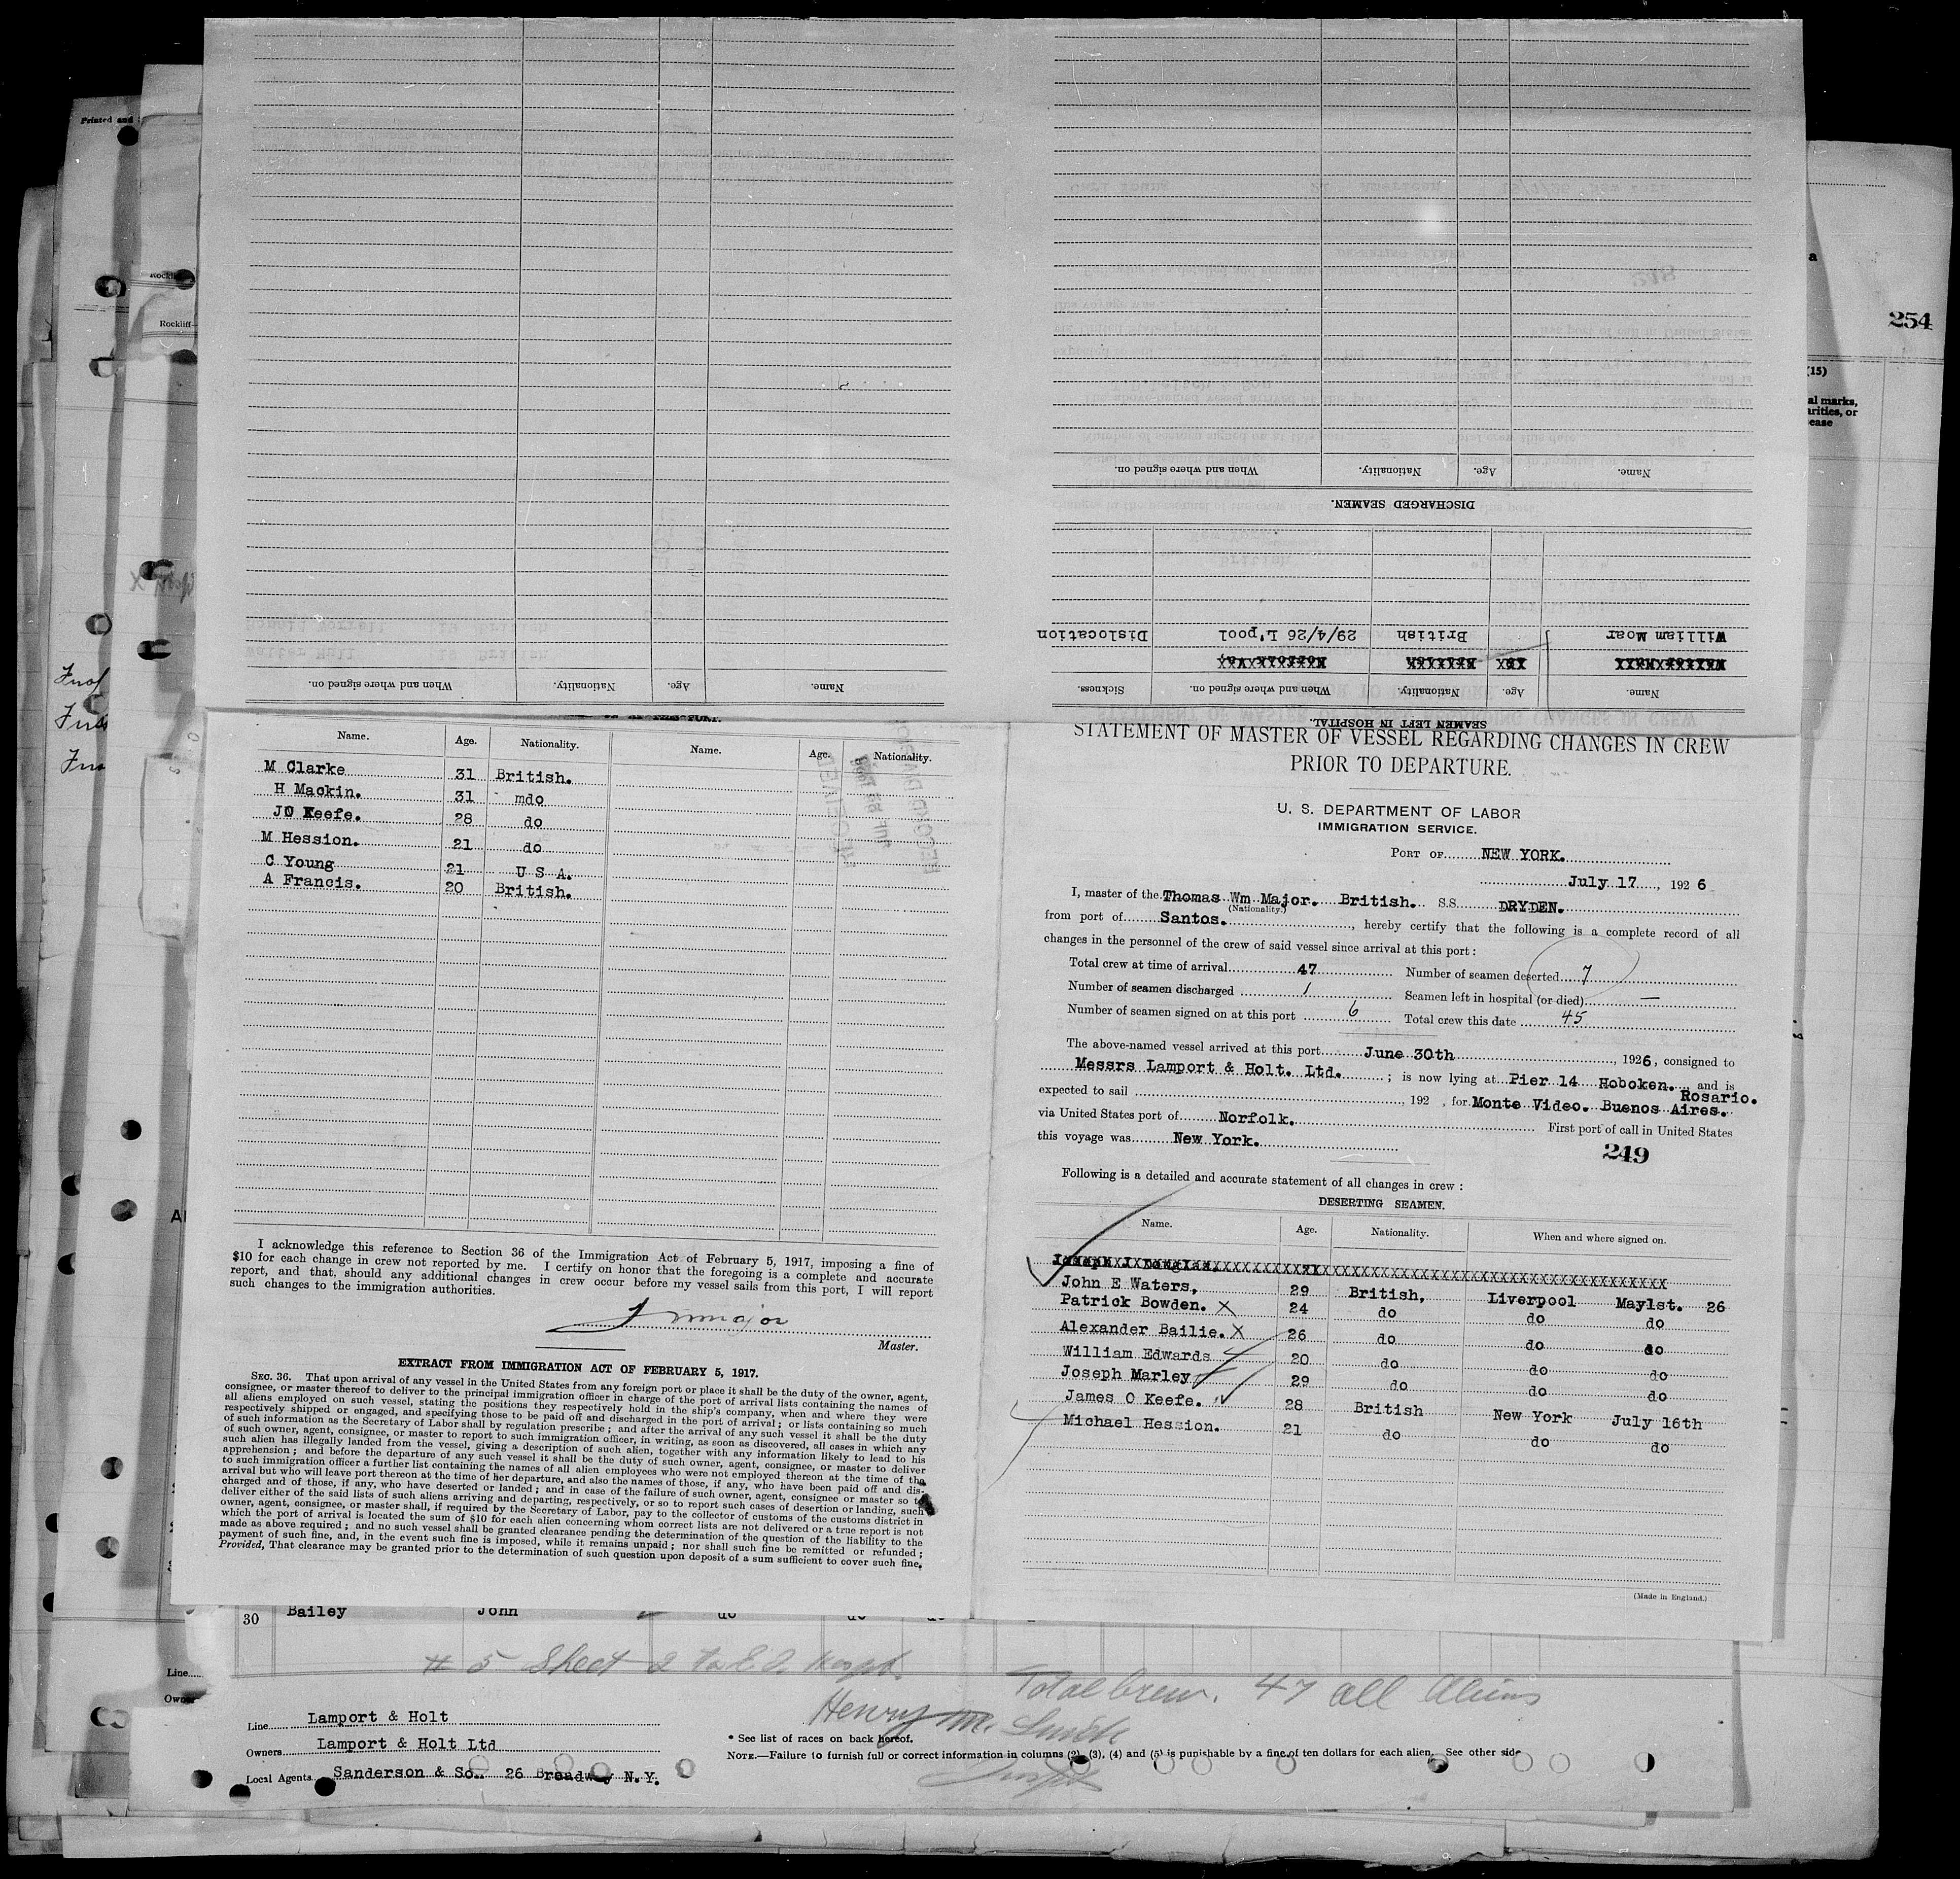 Printed and
Rockliff
254
(15)
al marks,
arities, or
ease
Name. Age. Nationality. When and where signed on.
DISCHARGED SEAMEN.
Name. Age. Nationality. When and where signed on.
William Moar British 29/4/26 L'pool Dislocation
Name. Age. Nationality. When and where signed on. Sickness.
SEAMEN LEFT IN HOSPITAL.
Name. Age. Nationality. Name. Age. Nationality.
M Clarke 31 British.
H Mackin. 31 mdo
JO Keefe. 28 do
M Hession. 21 do
C Young 21 U S A.
A Francis. 20 British.
I acknowledge this reference to Section 36 of the Immigration Act of February 5, 1917, imposing a fine of
$10 for each change in crew not reported by me. I certify on honor that the foregoing is a complete and accurate
report, and that, should any additional changes in crew occur before my vessel sails from this port, I will report
such changes to the immigration authorities.
Master.
EXTRACT FROM IMMIGRATION ACT OF FEBRUARY 5, 1917.
SEC. 36. That upon arrival of any vessel in the United States from any foreign port or place it shall be the duty of the owner, agent,
consignee, or master thereof to deliver to the principal immigration officer in charge of the port of arrival lists containing the names of
all aliens employed on such vessel, stating the positions they respectively hold in the ship's company, when and where they were
respectively shipped or engaged, and specifying those to be paid off and discharged in the port of arrival; or lists containing so much
of such information as the Secretary of Labor shall by regulation prescribe; and after the arrival of any such vessel it shall be the duty
of such owner, agent, consignee, or master to report to such immigration officer, in writing, as soon as discovered, all cases in which any
such alien has illegally landed from the vessel, giving a description of such alien, together with any information likely to lead to his
apprehension; and before the departure of any such vessel it shall be the duty of such owner, agent, consignee, or master to deliver
to such immigration officer a further list containing the names of all alien employees who were not employed thereon at the time of the
arrival but who will leave port thereon at the time of her departure, and also the names of those, if any, who have been paid off and dis-
charged and of those, if any, who have deserted or landed; and in case of the failure of such owner, agent, consignee or master so to
deliver either of the said lists of such aliens arriving and departing, respectively, or so to report such cases of desertion or landing, such
owner, agent, consignee, or master shall, if required by the Secretary of Labor, pay to the collector of customs of the customs district in
which the port of arrival is located the sum of $10 for each alien concerning whom correct lists are not delivered or a true report is not
made as above required; and no such vessel shall be granted clearance pending the determination of the question of the liability to the
payment of such fine, and, in the event such fine is imposed, while it remains unpaid; nor shall such fine be remitted or refunded;
Provided, That clearance may be granted prior to the determination of such question upon deposit of a sum sufficient to cover such fine.
STATEMENT OF MASTER OF VESSEL REGARDING CHANGES IN CREW
PRIOR TO DEPARTURE.
U. S. DEPARTMENT OF LABOR
IMMIGRATION SERVICE.
PORT OF NEW YORK.
July 17, 1926
I, master of the Thomas Wm Major. British. S.S. DRYDEN.
(Nationality.)
from port of Santos., hereby certify that the following is a complete record of all
changes in the personnel of the crew of said vessel since arrival at this port:
Total crew at time of arrival 47 Number of seamen deserted 7
Number of seamen discharged 1 Seamen left in hospital (or died) —
Number of seamen signed on at this port 6 Total crew this date 45
The above-named vessel arrived at this port June 30th, 1926, consigned to
Messrs Lamport & Holt. Ltd. ; is now lying at Pier 14 Hoboken. and is
expected to sail, 192 , for Monte Video. Buenos Aires. Rosario.
via United States port of Norfolk. First port of call in United States
this voyage was New York.
249
Following is a detailed and accurate statement of all changes in crew:
DESERTING SEAMEN.
Name. Age. Nationality. When and where signed on.
John E Waters, 29 British, Liverpool May1st. 26
Patrick Bowden. X 24 do do do
Alexander Bailie. X 26 do do do
William Edwards 20 do do do
Joseph Marley 29 do do do
James O Keefe. 28 British New York July 16th
Michael Hession. 21 do do do
(Made in England.)
30 Bailey John do do do
# 5 Sheet 2 to
Total Crew. 47 all Aliens
Henry M. Smith
Line Lamport & Holt
Owners Lamport & Holt Ltd
Local Agents Sanderson & So.. 26 Broadway N.Y.
* See list of races on back hereof.
NOTE.—Failure to furnish full or correct information in columns (2), (3), (4) and (5) is punishable by a fine of ten dollars for each alien. See other side
Line
Owner